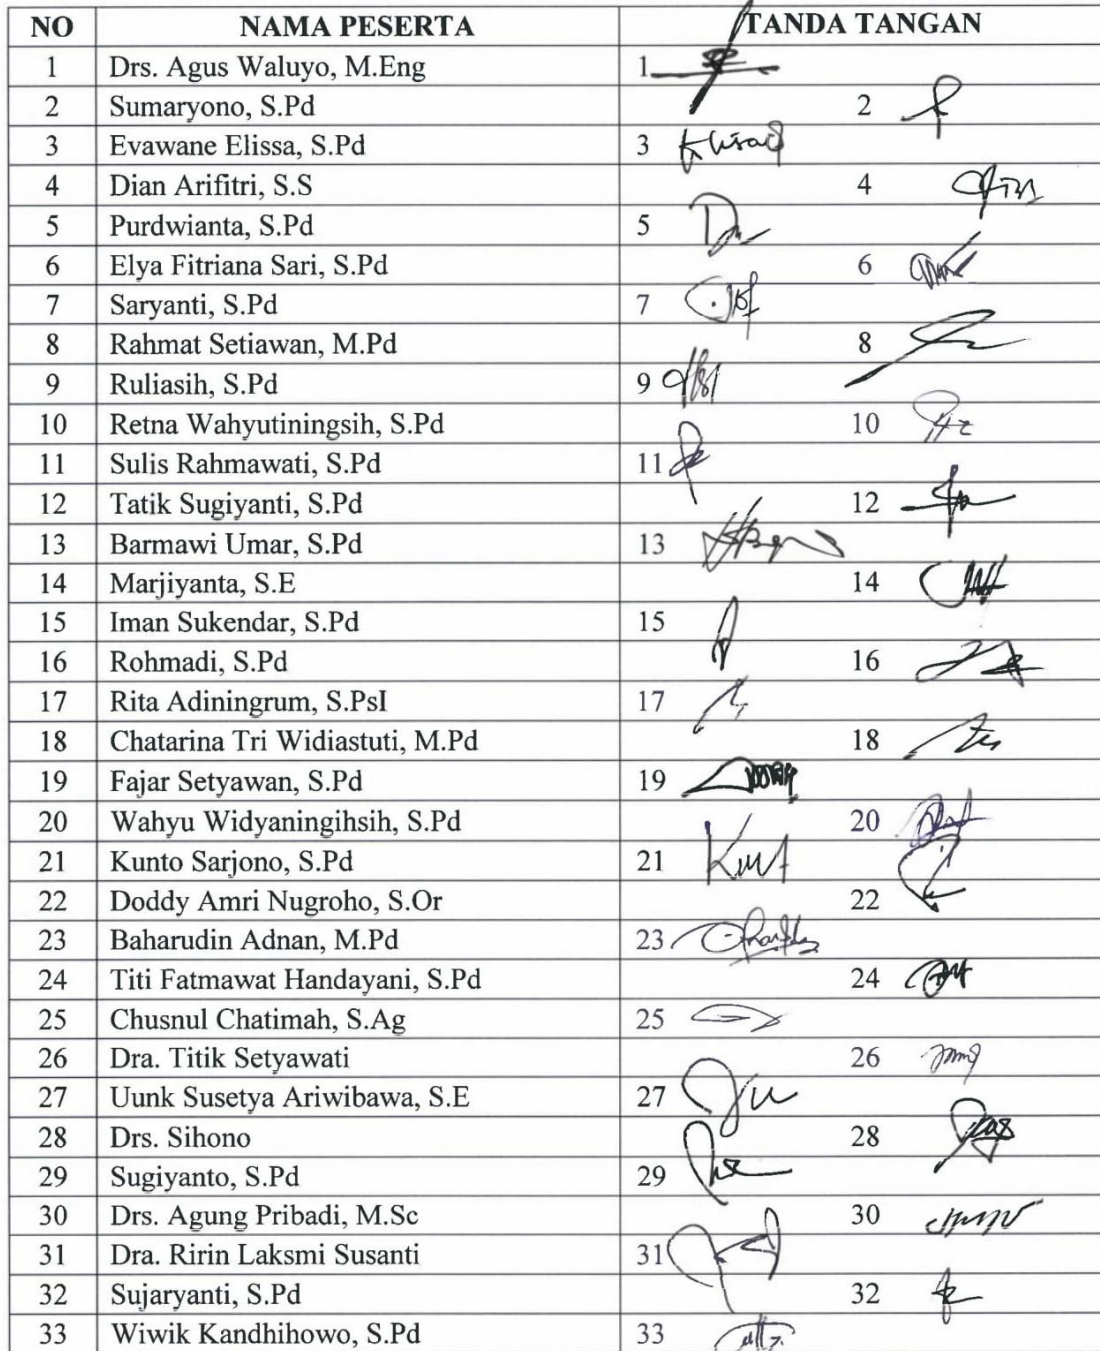 NO NAMA PESERTA TANDA TANGAN
1 Drs. Agus Waluyo, M.Eng 1
2 Sumaryono, S.Pd 2
3 Evawane Elissa, S.Pd 3
4 Dian Arifitri, S.S 4
5 Purdwianta, S.Pd 5
6 Elya Fitriana Sari, S.Pd 6
7 Saryanti, S.Pd 7
8 Rahmat Setiawan, M.Pd 8
9 Ruliasih, S.Pd 9
10 Retna Wahyutiningsih, S.Pd 10
11 Sulis Rahmawati, S.Pd 11
12 Tatik Sugiyanti, S.Pd 12
13 Barmawi Umar, S.Pd 13
14 Marjiyanta, S.E 14
15 Iman Sukendar, S.Pd 15
16 Rohmadi, S.Pd 16
17 Rita Adiningrum, S.PsI 17
18 Chatarina Tri Widiastuti, M.Pd 18
19 Fajar Setyawan, S.Pd 19
20 Wahyu Widyaningihsih, S.Pd 20
21 Kunto Sarjono, S.Pd 21
22 Doddy Amri Nugroho, S.Or 22
23 Baharudin Adnan, M.Pd 23
24 Titi Fatmawat Handayani, S.Pd 24
25 Chusnul Chatimah, S.Ag 25
26 Dra. Titik Setyawati 26
27 Uunk Susetya Ariwibawa, S.E 27
28 Drs. Sihono 28
29 Sugiyanto, S.Pd 29
30 Drs. Agung Pribadi, M.Sc 30
31 Dra. Ririn Laksmi Susanti 31
32 Sujaryanti, S.Pd 32
33 Wiwik Kandhihowo, S.Pd 33